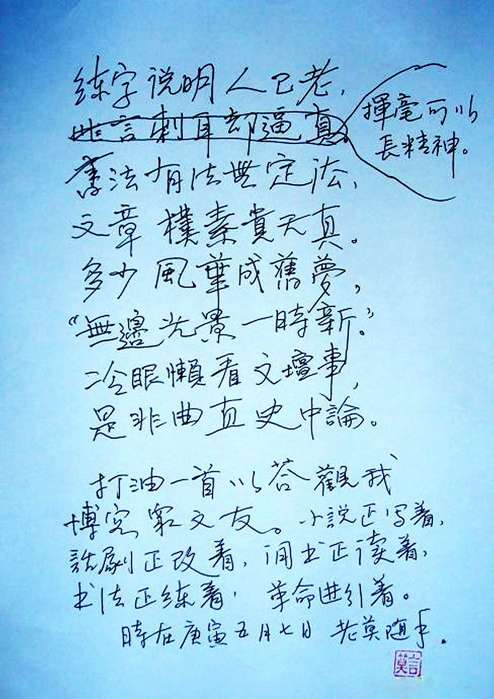 练字说明人已老,
此言刺耳却逼真。
揮毫可以
長精神。
書法有法無定法,
文章樸素貴天真。
多少風華成舊夢,
“無邊光景一時新。”
冷眼懶看文壇事,
是非曲直史中論。
打油一首以答觀我
博客眾文友。小説正写着,
話劇正改着,闲书正读着,
书法正练着,革命进行着。
時在庚寅五月七日 老莫随手。
莫言